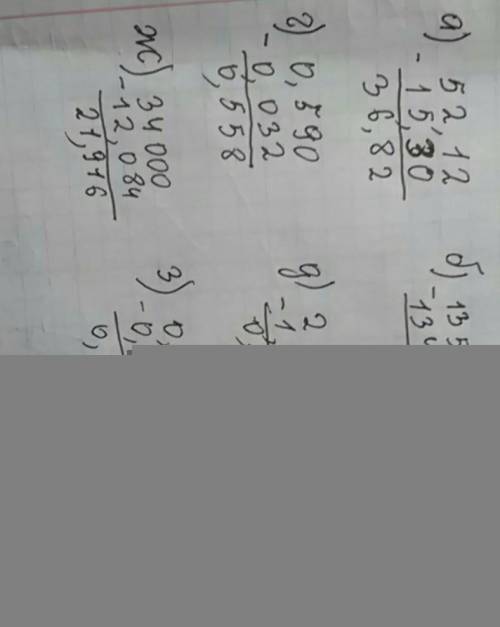 а) 52,12
- 15,30
36,82
б) 135
- 134
г) 0,590
- 0,032
0,558
д) 2
- 1
0,
ж) 34 000
- 12,084
21,916
з) 0,
- 0,
0,